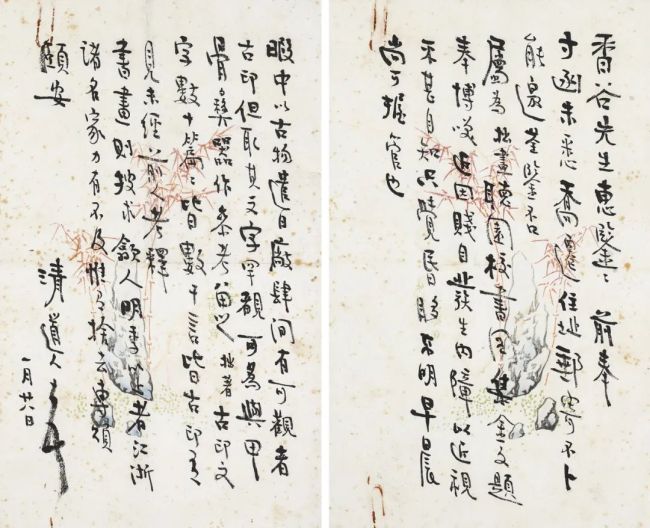 香谷先生惠鑒：前奉
寸函未悉喬遷住址郵寄不卜
能邀荃鑒不
屬為拙畫聽園校書圖 金文題
奉博噱近因賤目 發生內障以近視
不甚自知只覺昏眵不明早晨
尚可握管也
暇中以古物遣日廠肆間有可觀者
古印但取其文字罕覯可為與甲
骨彝器作參考留之拙著古印文
字數十篇篇皆數千言皆古印
見未經前人考釋
書畫則搜求歙人明季 者江浙
諸名家力有不及惟 捨去專頌
頤安
道人
一月廿八日